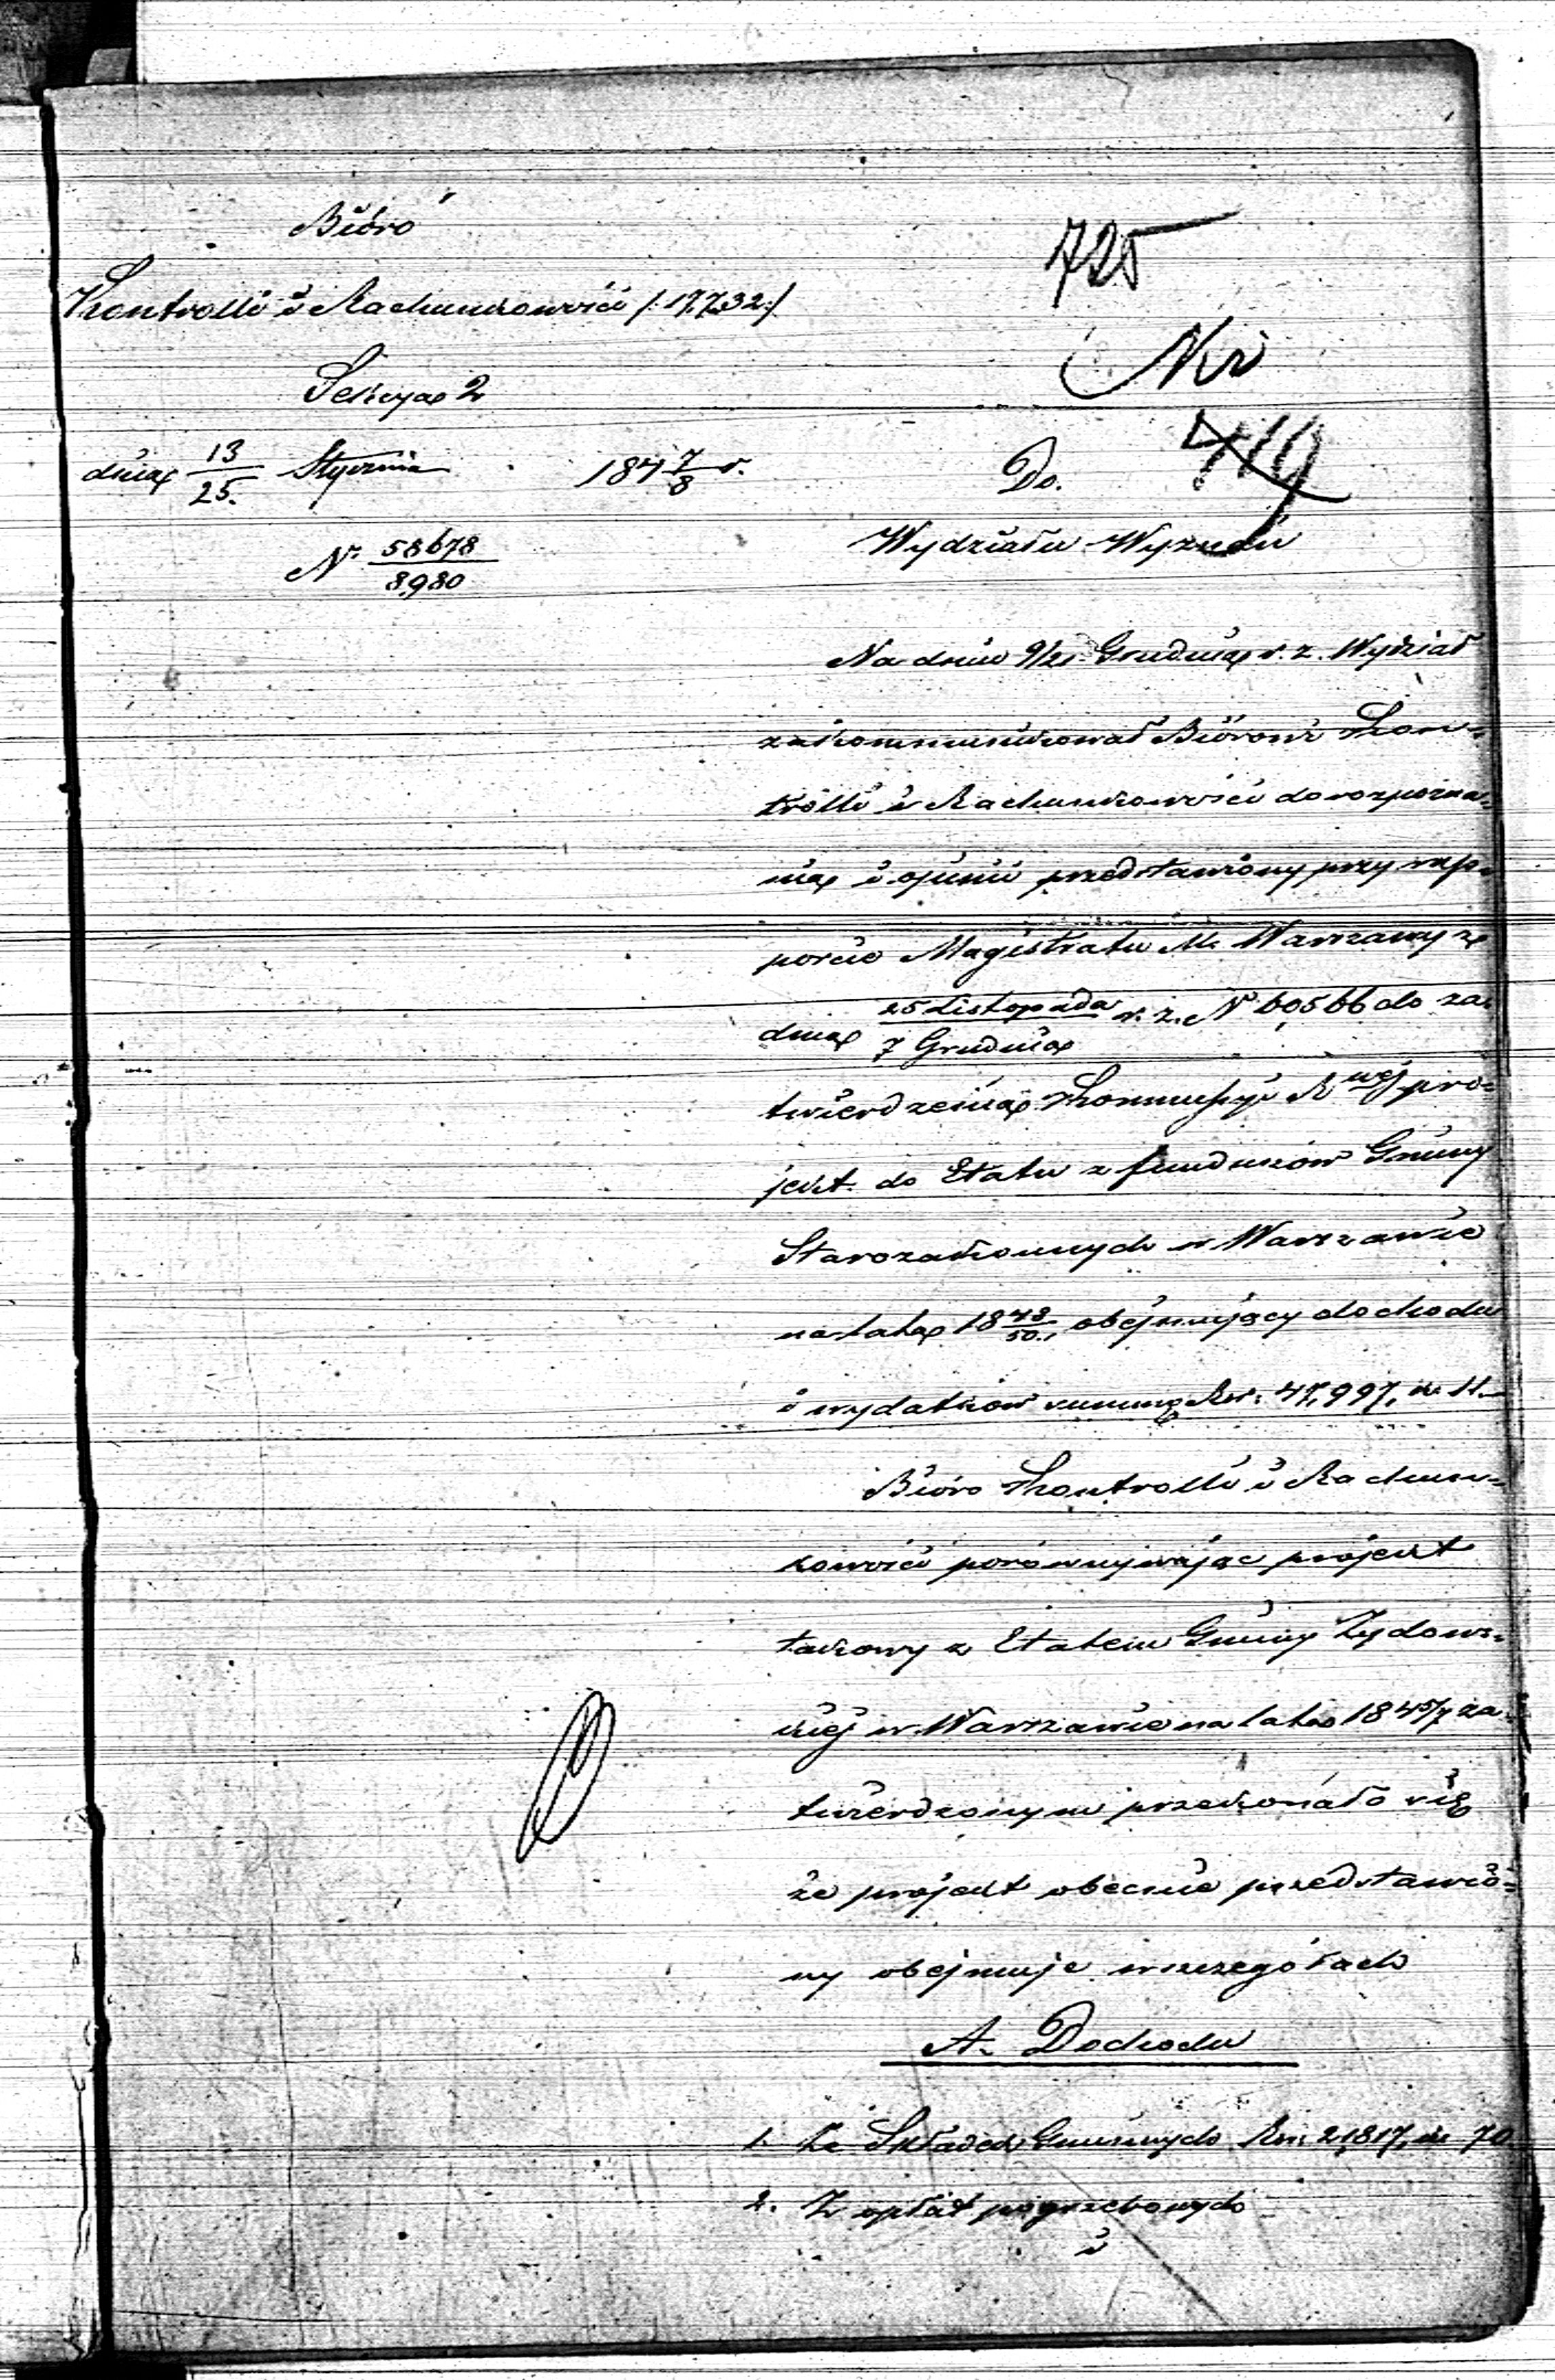 Bióro
Kontrolli i Rachunkowości /:17,732:/
Sekcya 2
dnia 13/25. Stycznia 184 7/8 r.
N° 58678/8980
725
Nr
419
Do.
Wydziału Wyznań
Na dniu 9/21 Grudnia r. z. Wydział
zakommunikował Biórowi Kon-
trolli i Rachunkowości do rozpozna-
nia i opinii przedstawiony przy rap-
porcie Magistratu M. Warszawy z
dnia 25 Listopada/7 Grudnia r. z. N° 60566 do za-
twierdzenia Kommissyi R wej pro-
jekt do Etatu z funduszów Gminy
Starozakonnych w Warszawie
na lata 18 48/50., obejmujący dochodu
i wydatków summę Rsr: 47,997, k. 11.
Bióro Kontrolli i Rachun-
kowości porównywając projekt
takowy z Etatem Gminy Żydows-
kiej w Warszawie na lata 184 5/7 za-
twierdzonym przekonało się
że projekt obecnie przedstawio-
ny obejmuje w szczegółach
A. Dochodu
1. Ze Składek Gminnych Rsr. 21817, k. 70
2. Z opłat pogrzebowych
i